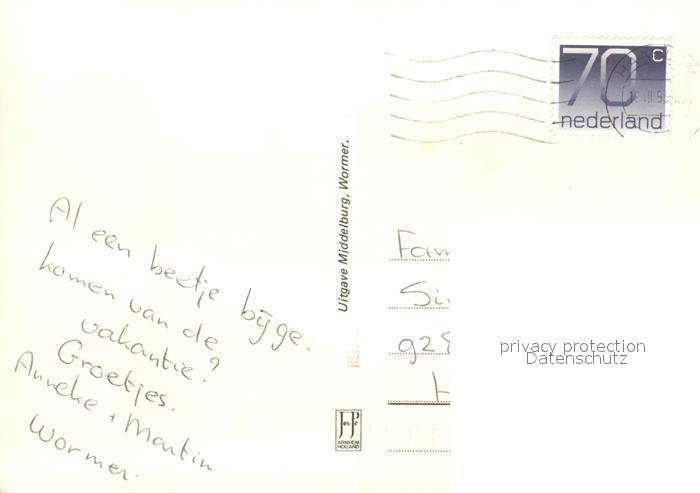 Al een beetje bijge.
komen van de
vakantie?
Groetjes.
Anneke + Martin
Wormer.
Uitgave Middelburg, Wormer.
JosPé
ARNHEM
HOLLAND
70 c
nederland
Fam
Si
928
H
privacy protection
Datenschutz